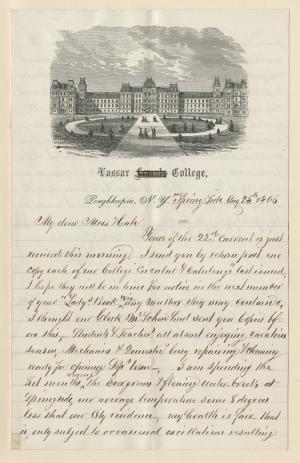 Vassar Female College,
Poughkeepsie, N. Y. "Spring Side" Aug 25th 1866
My dear Moss Hale
Yours of the 22nd Current is just
received this morning. I send you by return post one
copy each of our College Circular & Catalogue last issued,
I hope they will be in time for notice in the next number
of your "Lady's Book" any matter they may contain,
I thought our Clerk Mr Schou had sent you Copies be-
fore this, Students & Teachers all absent enjoying vacation
season, Mechanics & Domestics busy repairing & cleaning
ready for opening Sept. term. I am spending the
hot months, the Evergreens & flowing Water brooks at
Springside, our average temperature some 8 degrees
less that our City residence, my health is fair that
is only subject to occasional oscillations resulting